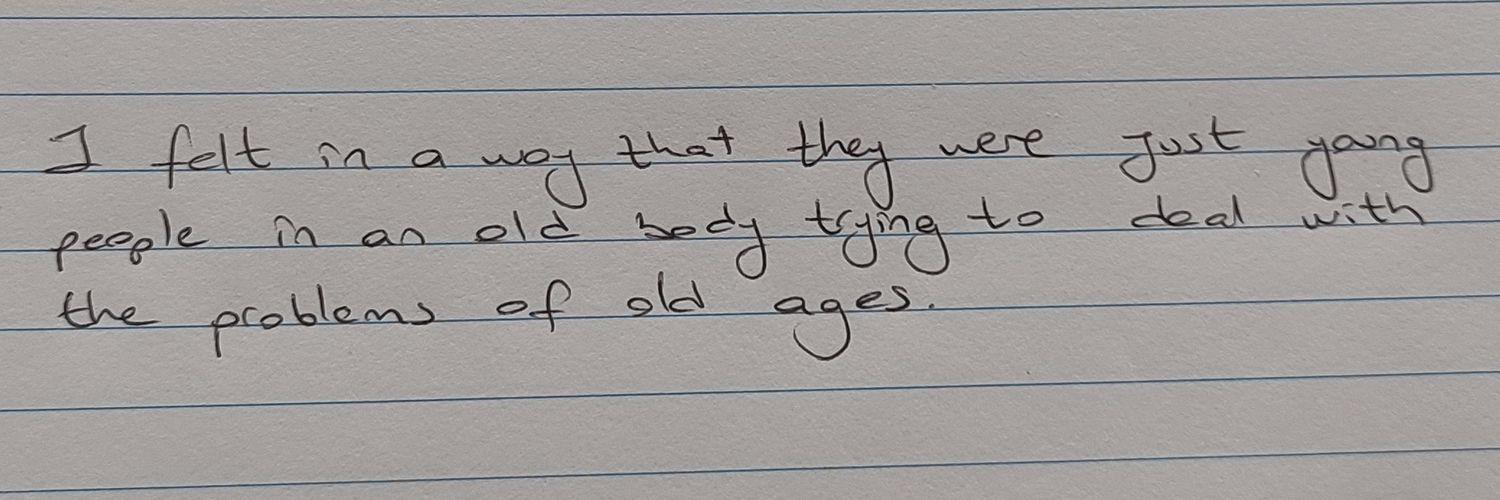 I felt in a way that they were just young
people in an old body trying to deal with
the problems of old ages.